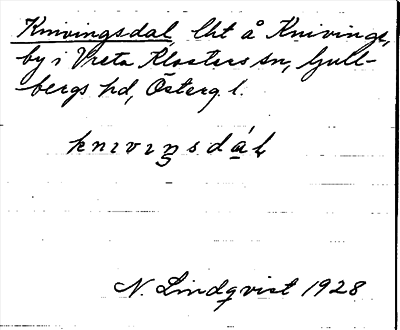 Knivingsdal, lht å Knivinge,
by i Vreta Klosters sn, Gull-
bergs hd, Österg. l.
knɪvɪŋsdáɫ
N. Lindqvist 1928